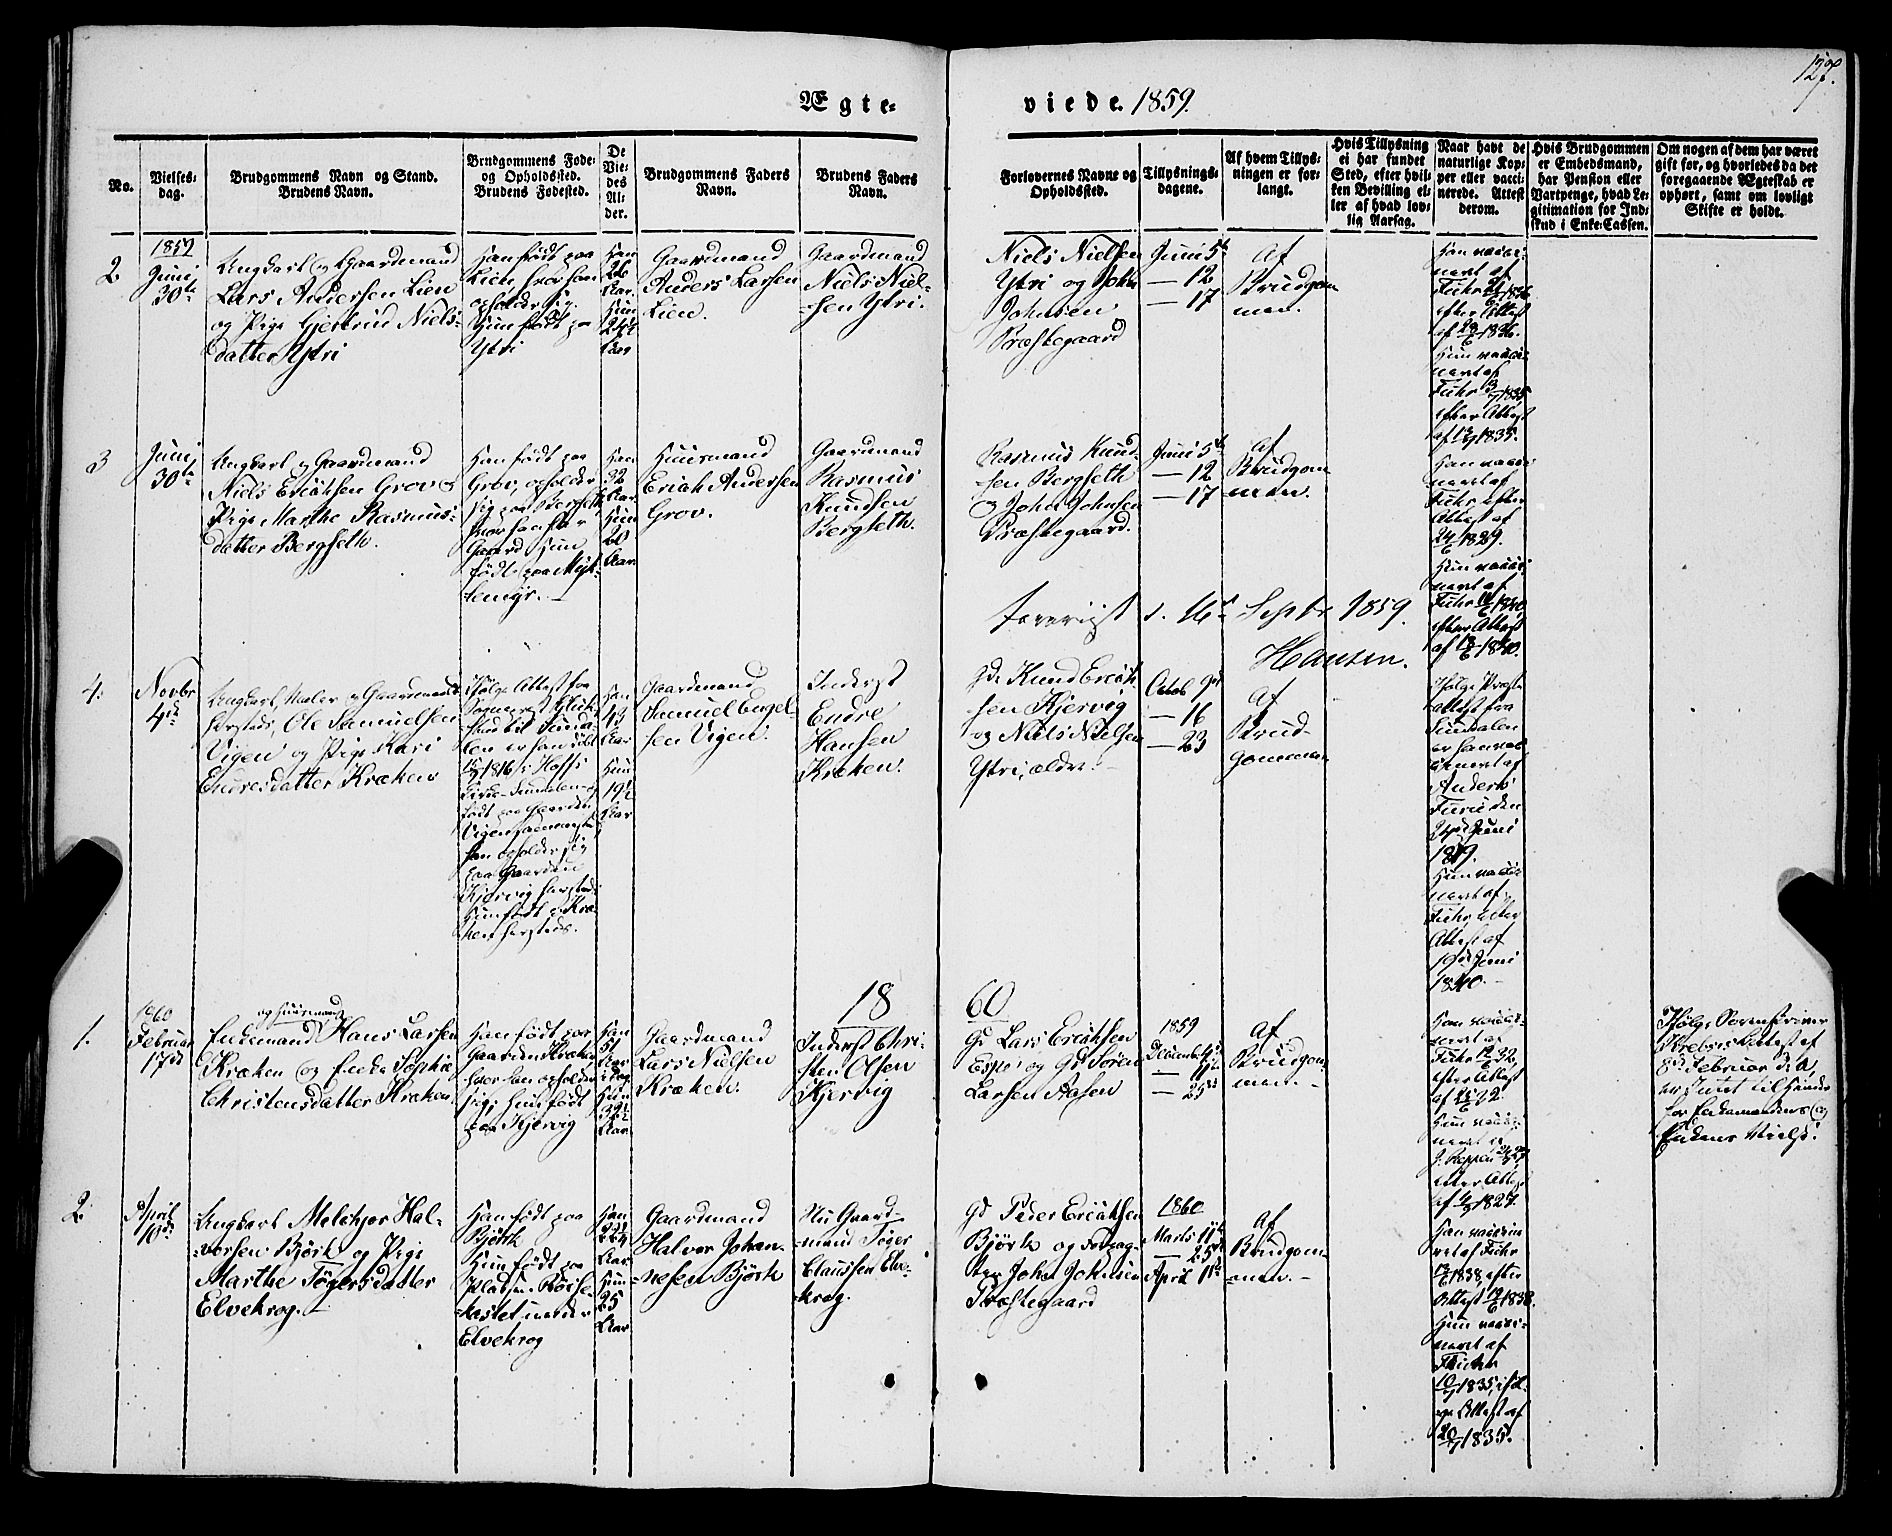 127.
Ægte-
viede. 1859.
No.
Vielses-
dag.
Brudgommens Navn og Stand.
Brudens Navn.
Brudgommens Fode-
og Opholdssted.
Brudens Fodested.
De
Vie-
des
Al-
der.
Brudgommens Faders
Navn.
Brudens Faders
Navn.
Forlovernes Navne og
Opholdssted.
Tillysnings-
dagene.
Af hvem Tillys-
ningen er for-
langt.
Hvis Tillysning
ei har fundet
Sted, efter hvil-
ken Bevilling el-
ler af hvad lov-
lig Aarsag.
Naar havt de
naturlige Kop-
per eller vacci-
nerede. Attest
derom.
Hvis Brudgommen
er Embedsmand,
har Pension eller
Vartpenge, hvad Le-
gitimation for Ind-
skud i Enke-Cassen.
Om nogen af dem har været
gift for, og hvorledes da det
foregaaende Ægteskab er
ophort, samt om lovligt
Skifte er holdt.
2.
1859
Juni
30te
Ungkarl og Gaardmand
Lars Andersen Lien
og Pige Gjertrud Niels-
datter Ytri
Han født paa
Lien, hvor han
opholder sig.
Hun født paa
Ytri
Han
26
Aar.
Hun
24½
Aar
Gaardmand
Anders Larsen
Lien.
Gaardmand
Niels Niel-
sen Ytri.
Niels Nielsen
Ytri og John
Johnsen
Præstegaard
Juni 5te
— 12
— 17
Af
Brudgom
men.
Han vacci-
neret af
Fuhr
efter Attest
af 1836.
Hun vacci-
neret af
Fuhr 1835
efter Attest
af 1835.
3
Juni
30te
Ungkarl og Gaardmand
Niels Erichsen Grov og
Pige Marthe Rasmus-
datter Bergseth.
Han født paa
Grov, opholder
sig paa Bergseth,
hvor han har
Gaard. Hun
født paa Myk-
lemyr.
Han
32
Aar.
Hun
20
Aar.
Huusmand
Erich Andersen
Grov.
Gaardmand
Rasmus
Knudsen
Bergseth.
Rasmus Knud-
sen Bergseth
og John Johnsen
Præstegaard.
Juni 5te
— 12
— 17
af
Brudgom
men.
Han vacci-
neret af
Fuhr efter
Attest af
24/6 1829.
Hun vacci-
neret af
Fuhr 1840
efter Attest
af 1840.
d. 16d Septbr 1859.
Hansen.
4.
Novbr
4d
Ungkarl, Maler og Gaardmand
hersteds, Ole Samuelsen
Vigen og Pige Kari
Endresdatter Kræken
Ifølge Attest fra
1816 i Hoffs
født paa Gaarden
Vigen
han opholder sig
paa Gaarden
Kjervig hersteds.
Hun født p. Kræ-
ken hersteds.
Han
43
Aar
Hun
19½
Aar
Gaardmand
Samuel Engel-
sen Vigen.
Inderst
Endre
Hansen
Kræken.
Gd. Knud Erich-
sen Kjervig
og Niels Nielsen
Ytri, ældre.
Octob 9de
— 16
— 23
Af
Brud-
gommen
Ifølge Præste-
attest fra
er han vac-
cineret af
Anders
Furu den
24de Juni
1819.
Hun vacci-
neret af
Fuhr efter
Attest af
19de Juni
1840.
18
60
1.
1860
Februar
17de
og Huusmand
Enkemand Hans Larsen
Kræken og Enke Sophie
Christensdatter Kræken.
Han født paa
Gaarden Kræken
hvor han opholder
sig; Hun født
paa Kjervig
Han
51
Aar
Hun
39½
Aar.
Gaardmand
Lars Nielsen
Kræken.
Inderst Chri-
sten Olsen
Kjervig
Gd Lars Erichsen
Espe og Gd Søren
Larsen Aasen
1859
December
— 11te
— 25de
Af
Brudgom
men.
Han vacci-
neret af
Fuhr
efter Attest
af
Hun vacci-
neret
efter Attest
af 1827.
Ifølge Sorenskriver
Krebs's Attest af
8de Februar d. A,
er Intet til Hinder
for Enkemandens og
Enkens Vielse.
2.
April
10de
Ungkarl Melchjor Hal-
vorsen Bjørk og Pige
Marthe Tøgersdatter
Elvekrog.
Han født paa
Bjørk
Hun født paa
Pladsen Røise-
kastet under
Elvekrog
Han
22¼
Aar.
Hun
25
Aar
Gaardmand
Halvor Johan-
nesen Bjørk
Nu Gaard-
mand Tøger
Claussen Elve-
krog.
Gd Peder Erichsen
Bjørk og Forpag-
ter John Johnsen
Præstegaard
1860
Marts 11te
— 25de
April 1ste
af
Brudgom
men.
Han vaccine-
ret af Fuhr
1838, efter
Attest 1838.
Hun vacci-
neret af
Fuhr
10/7 1835, iføl-
ge Attest af
20/7 1835.